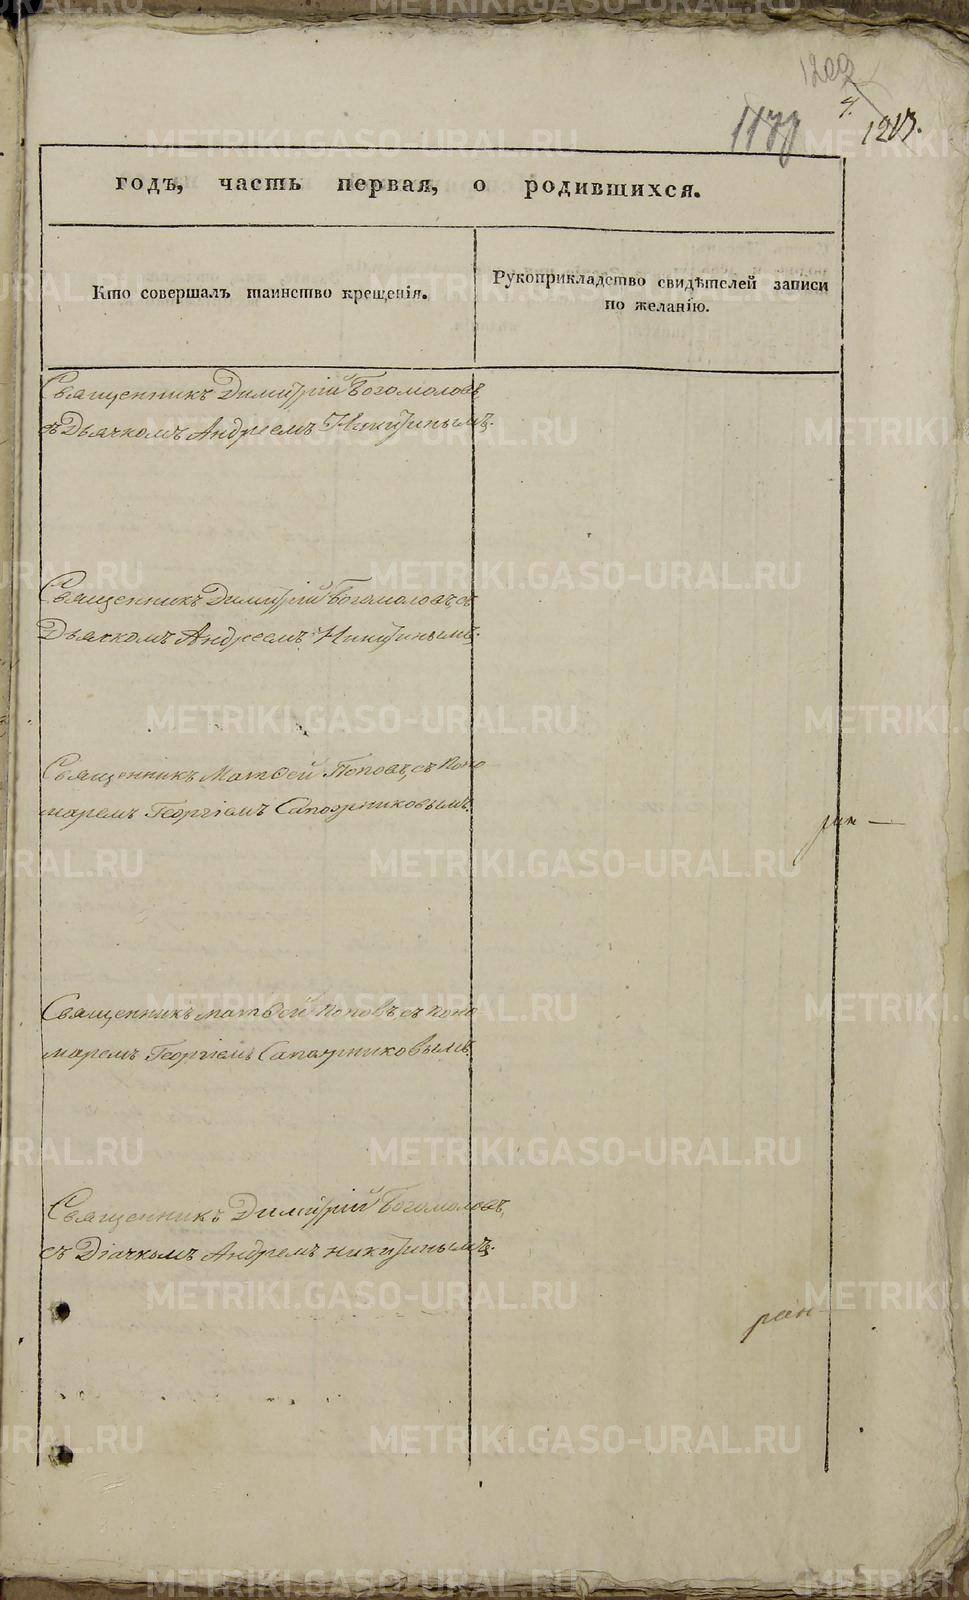 1209
4.
1213.
годъ, часть первая, о родившихся.
Кто совершалъ таинство крещенія.
Рукоприкладство свидѣтелей записи
по желанію.
Священникъ Димитрій Богомоловъ
съ Дьячкомъ Андреемъ Никитинымъ.
Священникъ Димитрій Богомоловъ, съ
Дьячкомъ Андреемъ Никитинымъ.
Священникъ Матѳей Поповъ, съ Поно
маремъ Георгіемъ Сапожниковымъ.
Священникъ Матѳей Поповъ, съ Поно
маремъ Георгіемъ Сапожниковымъ.
Священникъ Димитрій Богомоловъ,
съ Діачкомъ Андремъ Никитинымъ.
ран
METRIKI.GASO-URAL.RU